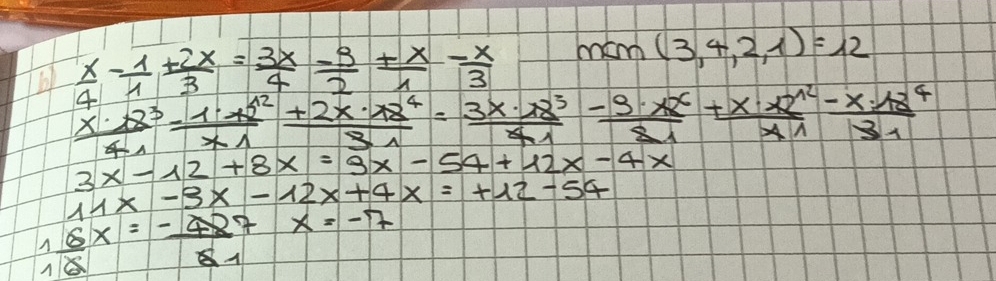 b) x/4 - 1/1 + 2x/3 = 3x/4 - 9/2 + x/1 - x/3 mcm (3,4,2,1) = 12
x·12³/4 1 - 1·12¹²/1 1 + 2x·12⁴/3 1 = 3x·12³/4 1 - 9·12⁶/2 1 + x·12¹²/1 1 - x·12⁴/3 1
3x - 12 + 8x = 9x - 54 + 12x - 4x
11x - 9x - 12x + 4x = +12 - 54
1 6x/1 6 = - 42 7/6 1 x = -7